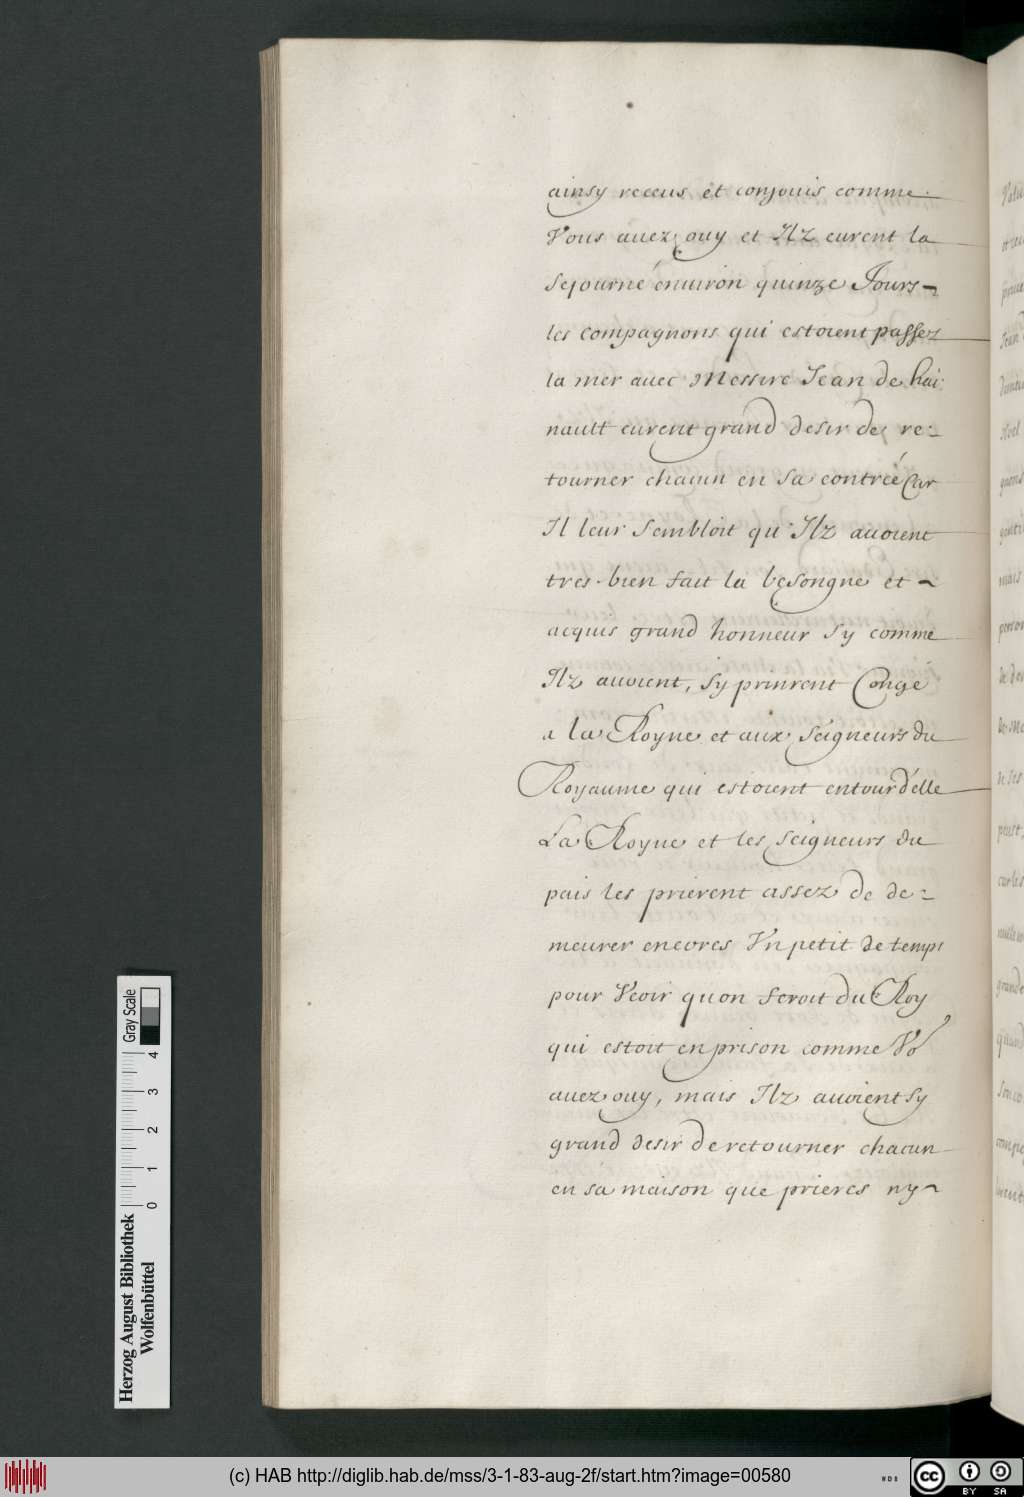 ainsy receus et conjouis comme
Vous auez ouy et Ilz eurent la
sejourné enuiron quinze Jours-
les compagnons qui estoient passez
la mer auec Messire Jean de hai:
nault eurent grand desir de re:-
tourner chacun en sa contreé Car
Il leur sembloit qu'Ilz auoient
tres-bien fait la besongne et -
acquis grand honneur sy comme
Ilz auoient, sy prinrent Congé
a la Royne et aux seigneurs du
Royaume qui estoient entour d'elle
La Royne et les seigneurs du
pais les prierent assez de de-
meurer encores Vn petit de temps
pour Veoir quon feroit du Roy
qui estoit en prison comme Vo
auez ouy, mais Ilz auoient sy
grand desir de retourner chacun
en sa maison que prieres ny-
Herzog August Bibliothek
Wolfenbüttel
0 1 2 3 4
Gray Scale
(c) HAB http://diglib.hab.de/mss/3-1-83-aug-2f/start.htm?image=00580
WDB
cc BY SA